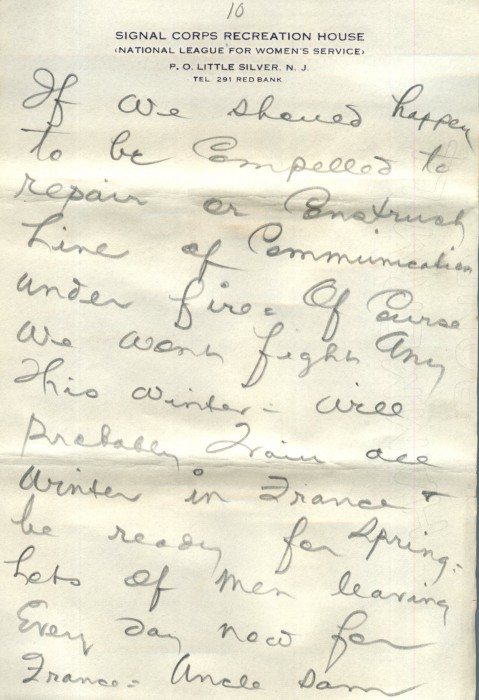 10
SIGNAL CORPS RECREATION HOUSE
(NATIONAL LEAGUE FOR WOMEN'S SERVICE)
P. O. LITTLE SILVER, N. J.
TEL. 291 RED BANK
If we should happen
to be Compelled to
repair or Construct
Line of Communication
under fire = Of Course
We wont fight Any
This winter - will
Probably Train all
Winter in France &
be ready for Spring -
Lots of men leaving
Every day now for
France = Uncle Sam